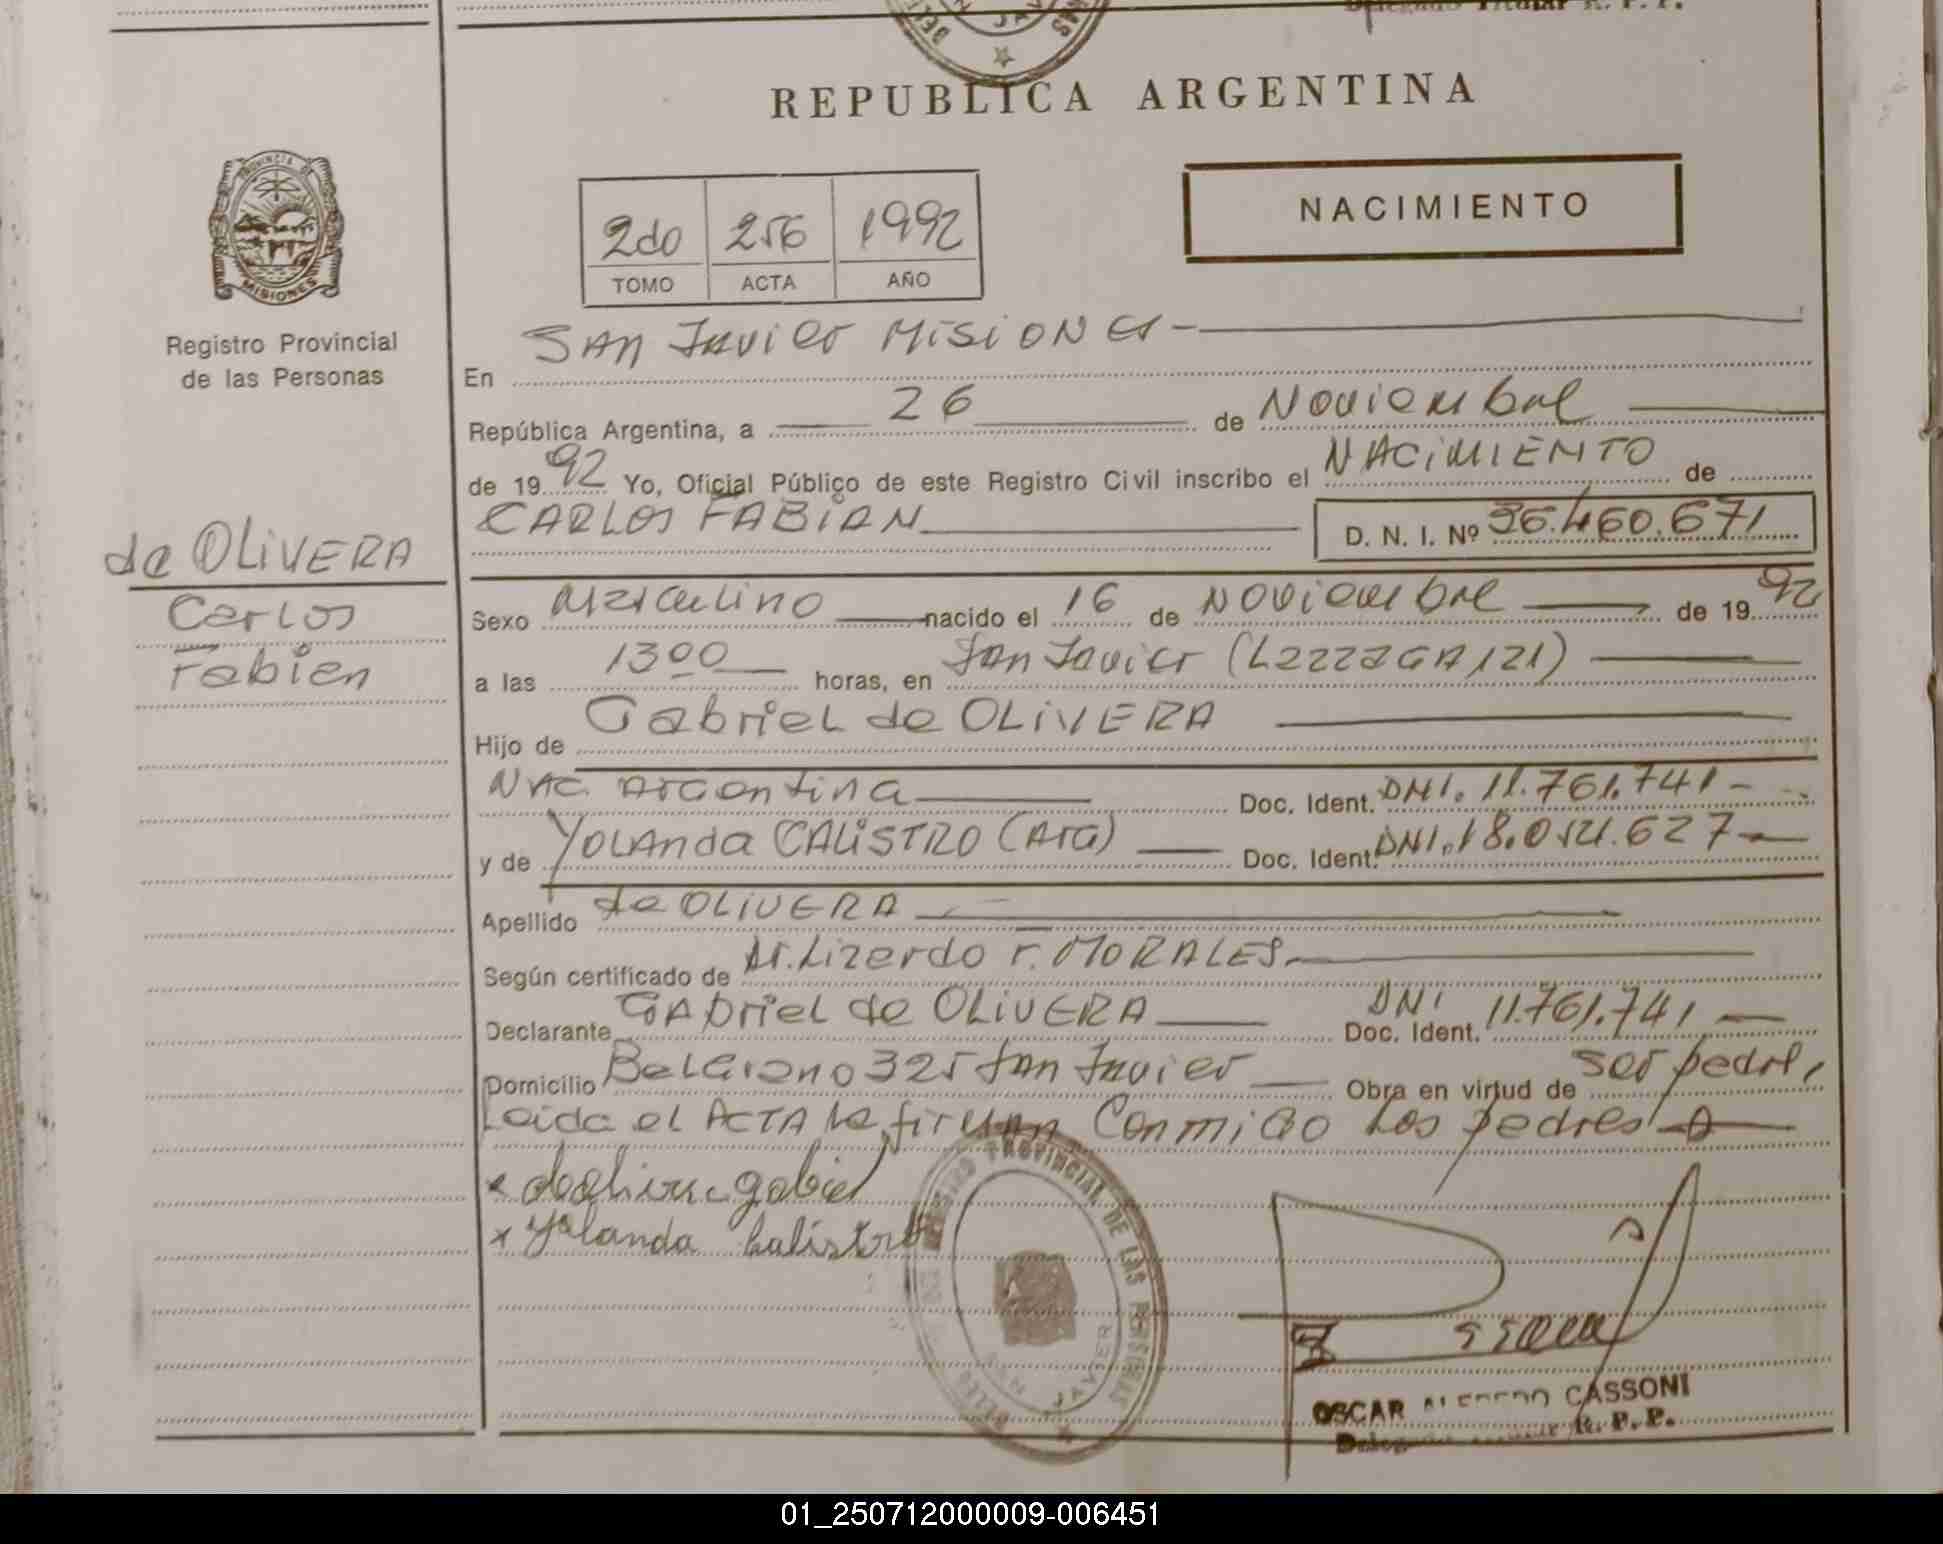 REPUBLICA ARGENTINA
PROVINCIA DE
MISIONES
Registro Provincial
de las Personas
2do 256 1992
TOMO ACTA AÑO
NACIMIENTO
En SAN Javier MISIONES
República Argentina, a 26 de Noviembre
de 1992 Yo, Oficial Público de este Registro Civil inscribo el NACIMIENTO de
CARLOS FABIAN D. N. I. Nº 36.460.671
de OLIVERA
Carlos
Fabian
Sexo Masculino nacido el 16 de Noviembre de 1992
a las 1300 horas, en San Javier
Hijo de Gabriel de OLIVERA
NAC. Argentina Doc. Ident. DNI. 11.761.741
y de YOLANDA CALISTRO (Arg) Doc. Ident. DNI. 18.0
Apellido de OLIVERA
Según certificado de Dr. Lizardo r. MORALES
Declarante GAbriel de OLIVERA Doc. Ident. DNI 11.761.741
Domicilio Belgrano 325 San Javier Obra en virtud de ser padre,
Leida el ACTA la firman Conmigo Los padres
x deolivera gabriel
x Yolanda Calistro
PROVINCIAL DE LAS PERSONAS
SAN JAVIER
OSCAR ALFREDO CASSONI
R. P. P.
01_250712000009-006451